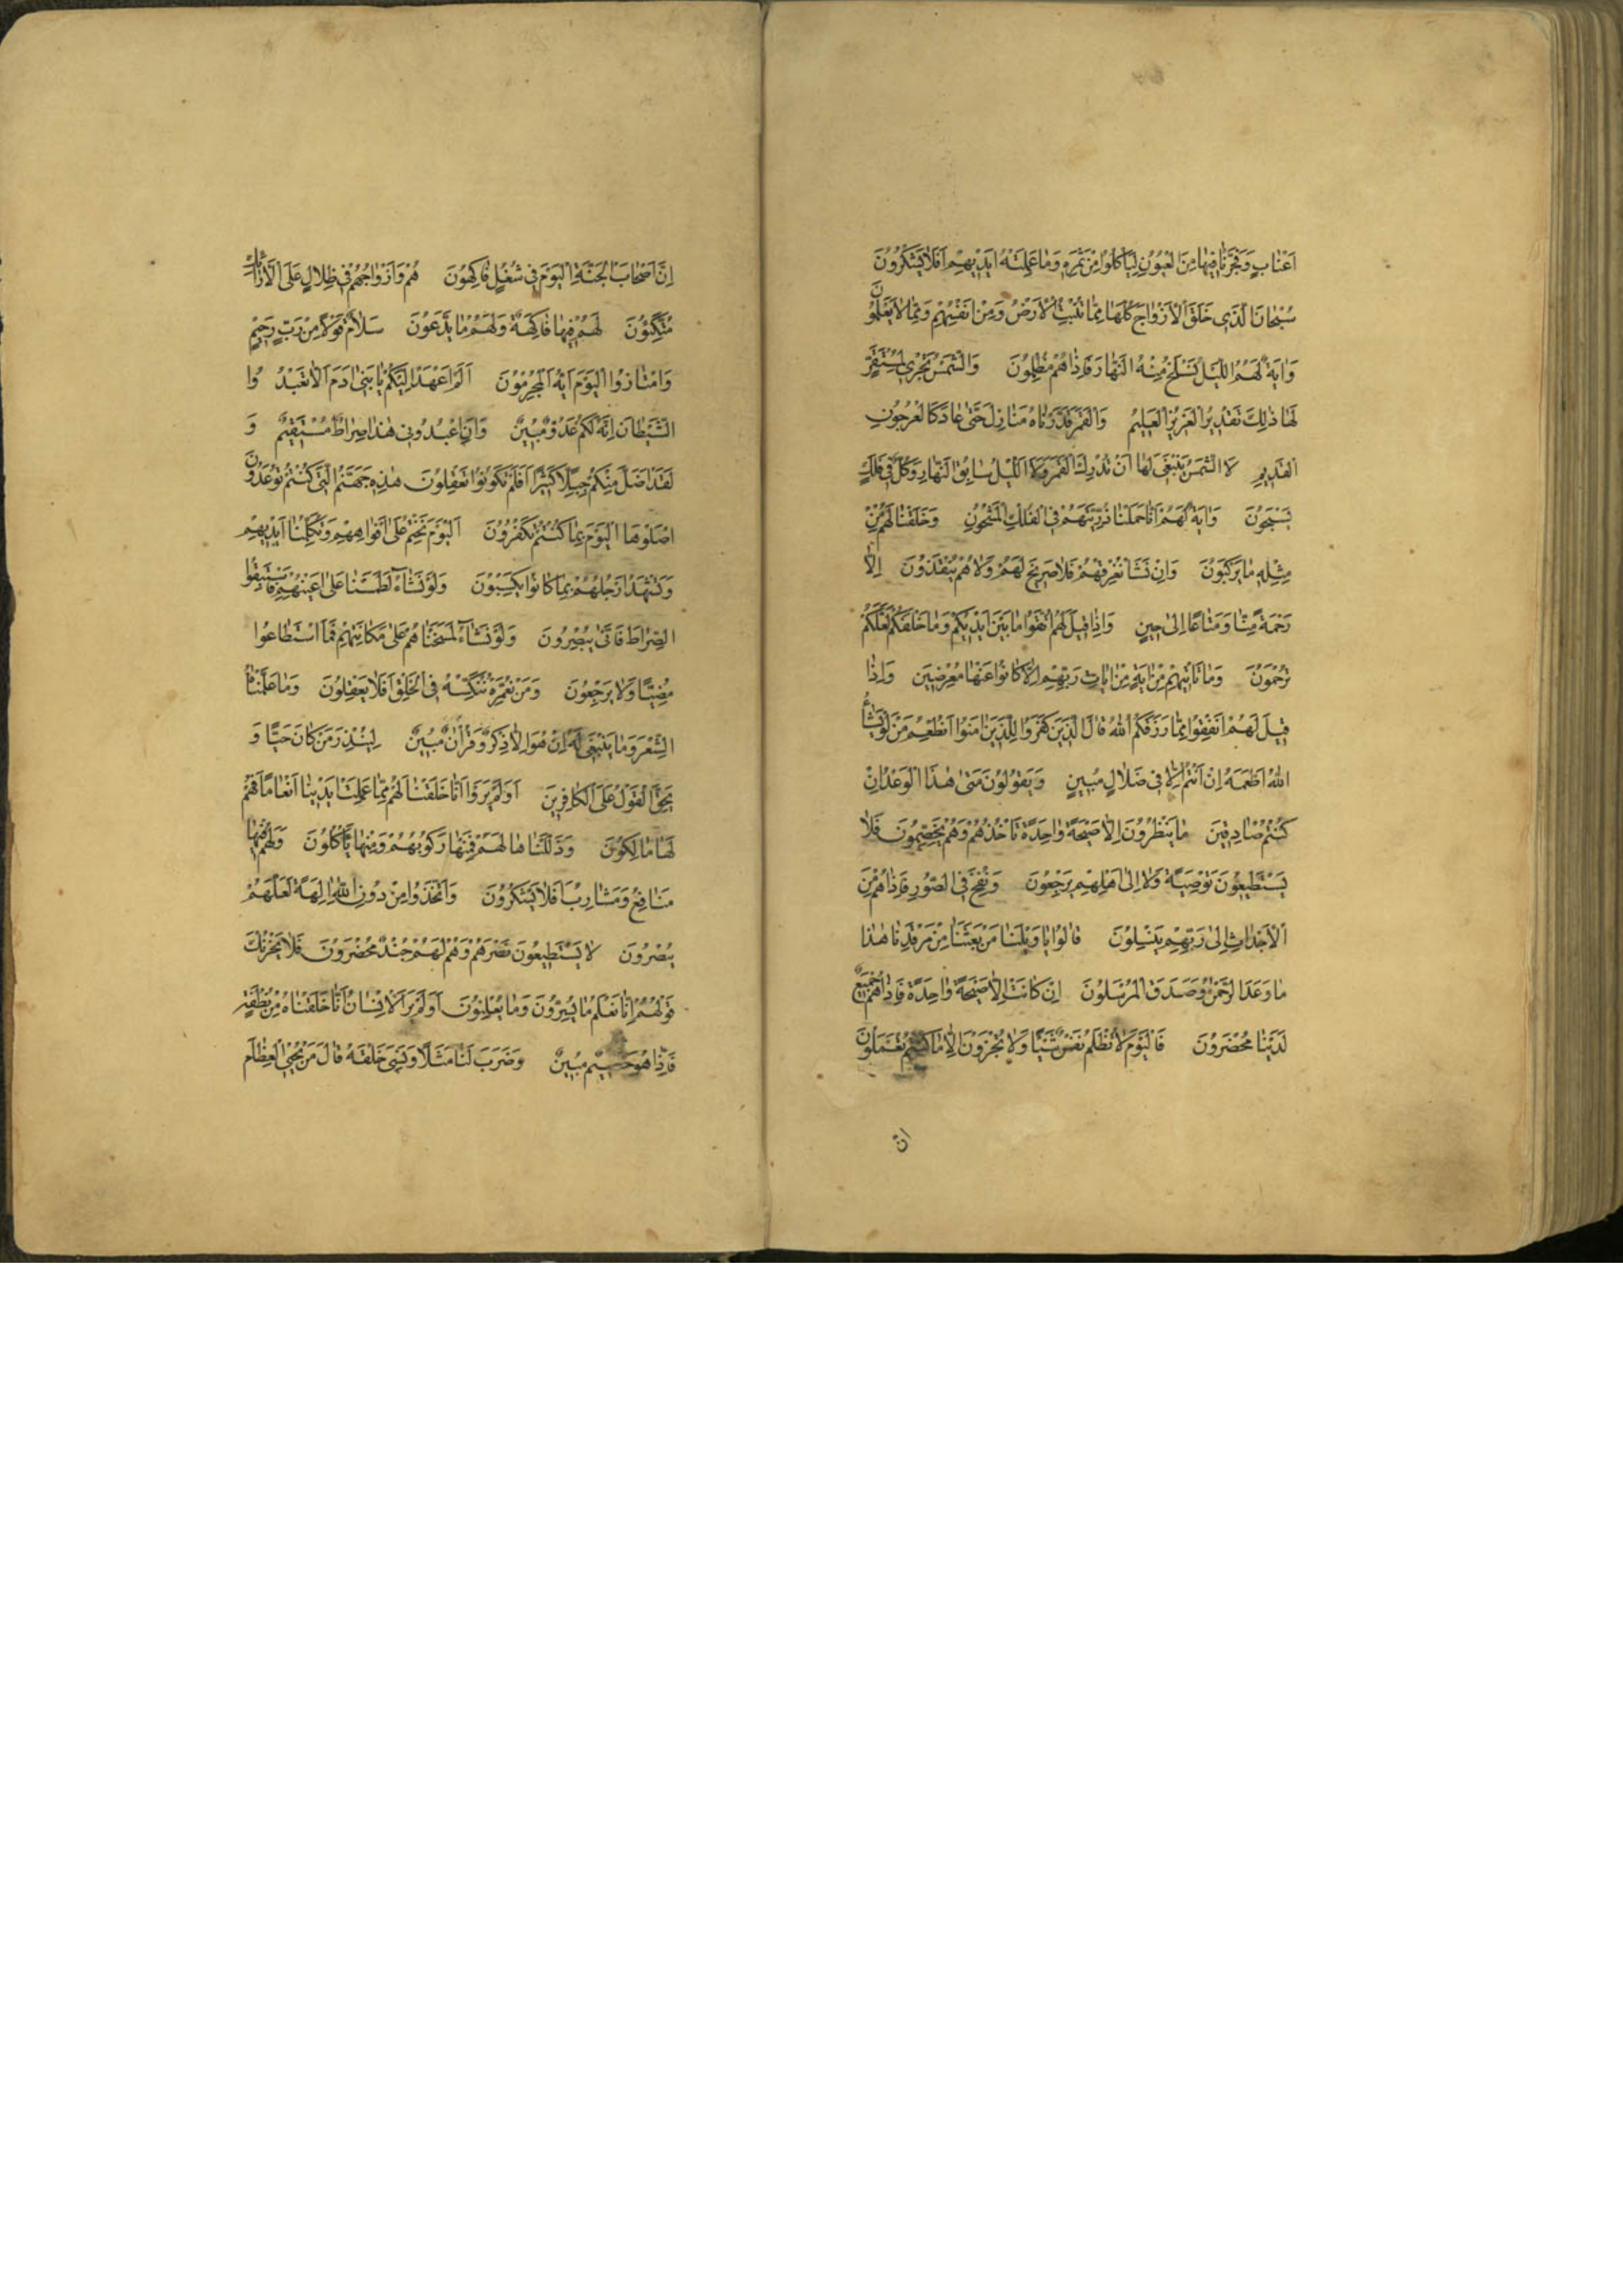 اَعْنَابٍ وَفَجَّرْنَا فِيهَا مِنَ الْعُيُونِ لِيَأْكُلُوا مِنْ ثَمَرِهِ وَمَا عَمِلَتْهُ اَيْدِيهِمْ اَفَلَا يَشْكُرُونَ
سُبْحَانَ الَّذِي خَلَقَ الْاَزْوَاجَ كُلَّهَا مِمَّا تُنْبِتُ الْاَرْضُ وَمِنْ اَنْفُسِهِمْ وَمِمَّا لَا يَعْلَمُونَ
وَاٰيَةٌ لَهُمُ اللَّيْلُ نَسْلَخُ مِنْهُ النَّهَارَ فَاِذَا هُمْ مُظْلِمُونَ وَالشَّمْسُ تَجْرِي لِمُسْتَقَرٍّ
لَهَا ذٰلِكَ تَقْدِيرُ الْعَزِيزِ الْعَلِيمِ وَالْقَمَرَ قَدَّرْنَاهُ مَنَازِلَ حَتّٰى عَادَ كَالْعُرْجُونِ
الْقَدِيمِ لَا الشَّمْسُ يَنْبَغِي لَهَا اَنْ تُدْرِكَ الْقَمَرَ وَلَا اللَّيْلُ سَابِقُ النَّهَارِ وَكُلٌّ فِي فَلَكٍ
يَسْبَحُونَ وَاٰيَةٌ لَهُمْ اَنَّا حَمَلْنَا ذُرِّيَّتَهُمْ فِي الْفُلْكِ الْمَشْحُونِ وَخَلَقْنَا لَهُمْ مِنْ
مِثْلِهِ مَا يَرْكَبُونَ وَاِنْ نَشَأْ نُغْرِقْهُمْ فَلَا صَرِيخَ لَهُمْ وَلَا هُمْ يُنْقَذُونَ اِلَّا
رَحْمَةً مِنَّا وَمَتَاعًا اِلٰى حِينٍ وَاِذَا قِيلَ لَهُمُ اتَّقُوا مَا بَيْنَ اَيْدِيكُمْ وَمَا خَلْفَكُمْ لَعَلَّكُمْ
تُرْحَمُونَ وَمَا تَأْتِيهِمْ مِنْ اٰيَةٍ مِنْ اٰيَاتِ رَبِّهِمْ اِلَّا كَانُوا عَنْهَا مُعْرِضِينَ وَاِذَا
قِيلَ لَهُمْ اَنْفِقُوا مِمَّا رَزَقَكُمُ اللّٰهُ قَالَ الَّذِينَ كَفَرُوا لِلَّذِينَ اٰمَنُوا اَنُطْعِمُ مَنْ لَوْ يَشَاءُ
اللّٰهُ اَطْعَمَهُ اِنْ اَنْتُمْ اِلَّا فِي ضَلَالٍ مُبِينٍ وَيَقُولُونَ مَتٰى هٰذَا الْوَعْدُ اِنْ
كُنْتُمْ صَادِقِينَ مَا يَنْظُرُونَ اِلَّا صَيْحَةً وَاحِدَةً تَأْخُذُهُمْ وَهُمْ يَخِصِّمُونَ فَلَا
يَسْتَطِيعُونَ تَوْصِيَةً وَلَا اِلٰى اَهْلِهِمْ يَرْجِعُونَ وَنُفِخَ فِي الصُّورِ فَاِذَا هُمْ مِنَ
الْاَجْدَاثِ اِلٰى رَبِّهِمْ يَنْسِلُونَ قَالُوا يَا وَيْلَنَا مَنْ بَعَثَنَا مِنْ مَرْقَدِنَا هٰذَا
مَا وَعَدَ الرَّحْمٰنُ وَصَدَقَ الْمُرْسَلُونَ اِنْ كَانَتْ اِلَّا صَيْحَةً وَاحِدَةً فَاِذَا هُمْ جَمِيعٌ
لَدَيْنَا مُحْضَرُونَ فَالْيَوْمَ لَا تُظْلَمُ نَفْسٌ شَيْئًا وَلَا تُجْزَوْنَ اِلَّا مَا كُنْتُمْ تَعْمَلُونَ
ان
اِنَّ اَصْحَابَ الْجَنَّةِ الْيَوْمَ فِي شُغُلٍ فَاكِهُونَ هُمْ وَاَزْوَاجُهُمْ فِي ظِلَالٍ عَلَى الْاَرَائِكِ
مُتَّكِئُونَ لَهُمْ فِيهَا فَاكِهَةٌ وَلَهُمْ مَا يَدَّعُونَ سَلَامٌ قَوْلًا مِنْ رَبٍّ رَحِيمٍ
وَامْتَازُوا الْيَوْمَ اَيُّهَ الْمُجْرِمُونَ اَلَمْ اَعْهَدْ اِلَيْكُمْ يَا بَنِي اٰدَمَ اَلَّا تَعْبُدُوا
الشَّيْطَانَ اِنَّهُ لَكُمْ عَدُوٌّ مُبِينٌ وَاَنِ اعْبُدُونِي هٰذَا صِرَاطٌ مُسْتَقِيمٌ وَ
لَقَدْ اَضَلَّ مِنْكُمْ جِبِلًّا كَثِيرًا اَفَلَمْ تَكُونُوا تَعْقِلُونَ هٰذِهِ جَهَنَّمُ الَّتِي كُنْتُمْ تُوعَدُونَ
اصْلَوْهَا الْيَوْمَ بِمَا كُنْتُمْ تَكْفُرُونَ اَلْيَوْمَ نَخْتِمُ عَلٰى اَفْوَاهِهِمْ وَتُكَلِّمُنَا اَيْدِيهِمْ
وَتَشْهَدُ اَرْجُلُهُمْ بِمَا كَانُوا يَكْسِبُونَ وَلَوْ نَشَاءُ لَطَمَسْنَا عَلٰى اَعْيُنِهِمْ فَاسْتَبَقُوا
الصِّرَاطَ فَاَنّٰى يُبْصِرُونَ وَلَوْ نَشَاءُ لَمَسَخْنَاهُمْ عَلٰى مَكَانَتِهِمْ فَمَا اسْتَطَاعُوا
مُضِيًّا وَلَا يَرْجِعُونَ وَمَنْ نُعَمِّرْهُ نُنَكِّسْهُ فِي الْخَلْقِ اَفَلَا يَعْقِلُونَ وَمَا عَلَّمْنَاهُ
الشِّعْرَ وَمَا يَنْبَغِي لَهُ اِنْ هُوَ اِلَّا ذِكْرٌ وَقُرْاٰنٌ مُبِينٌ لِيُنْذِرَ مَنْ كَانَ حَيًّا وَ
يَحِقَّ الْقَوْلُ عَلَى الْكَافِرِينَ اَوَلَمْ يَرَوْا اَنَّا خَلَقْنَا لَهُمْ مِمَّا عَمِلَتْ اَيْدِينَا اَنْعَامًا فَهُمْ
لَهَا مَالِكُونَ وَذَلَّلْنَاهَا لَهُمْ فَمِنْهَا رَكُوبُهُمْ وَمِنْهَا يَأْكُلُونَ وَلَهُمْ فِيهَا
مَنَافِعُ وَمَشَارِبُ اَفَلَا يَشْكُرُونَ وَاتَّخَذُوا مِنْ دُونِ اللّٰهِ اٰلِهَةً لَعَلَّهُمْ
يُنْصَرُونَ لَا يَسْتَطِيعُونَ نَصْرَهُمْ وَهُمْ لَهُمْ جُنْدٌ مُحْضَرُونَ فَلَا يَحْزُنْكَ
قَوْلُهُمْ اِنَّا نَعْلَمُ مَا يُسِرُّونَ وَمَا يُعْلِنُونَ اَوَلَمْ يَرَ الْاِنْسَانُ اَنَّا خَلَقْنَاهُ مِنْ نُطْفَةٍ
فَاِذَا هُوَ خَصِيمٌ مُبِينٌ وَضَرَبَ لَنَا مَثَلًا وَنَسِيَ خَلْقَهُ قَالَ مَنْ يُحْيِي الْعِظَامَ